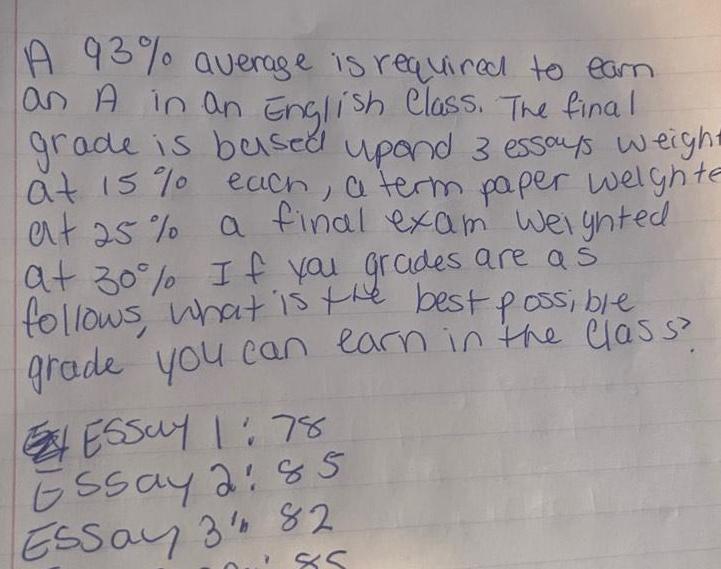 A 93% average is required to earn
an A in an English Class. The final
grade is based upond 3 essays weight
at 15% each, a term paper weighte
at 25% a final exam weighted
at 30% If you grades are as
follows, what is the best possible
grade you can earn in the Class?
Essay 1: 78
Essay 2: 85
Essay 3: 82
85